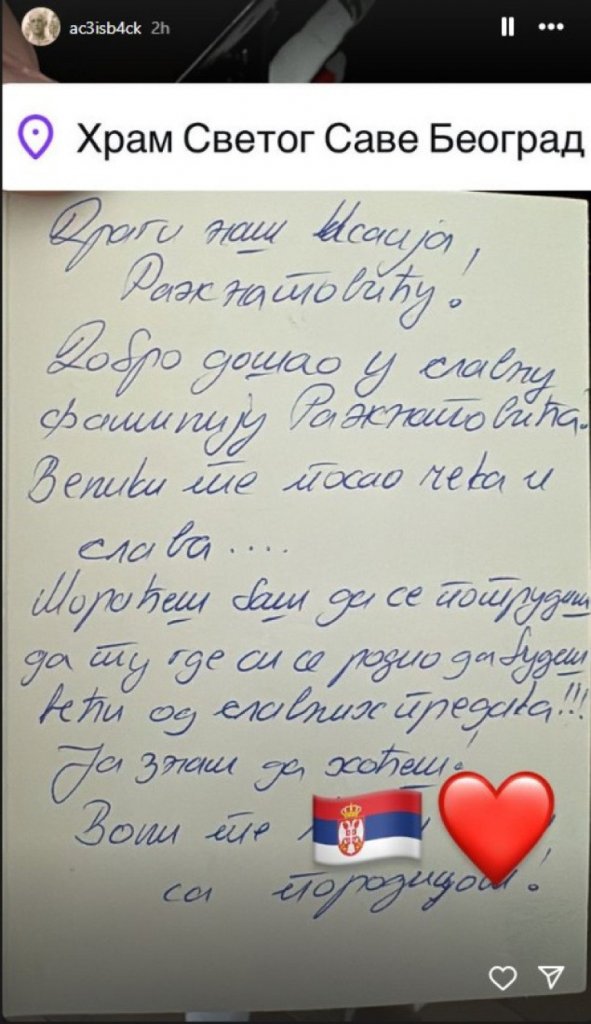 ac3isb4ck 2h
Храм Светог Саве Београд
Драги наш Исаија,
Ражнатовићу!
Добро дошао у славну
фамилију Ражнатовића.
Велики те посао чека и
слава....
Мораћеш баш да се потрудиш
да ту где си се родио да будеш
већи од славних предака!!!
Ја знам да хоћеш!
Воли те
са породицом!